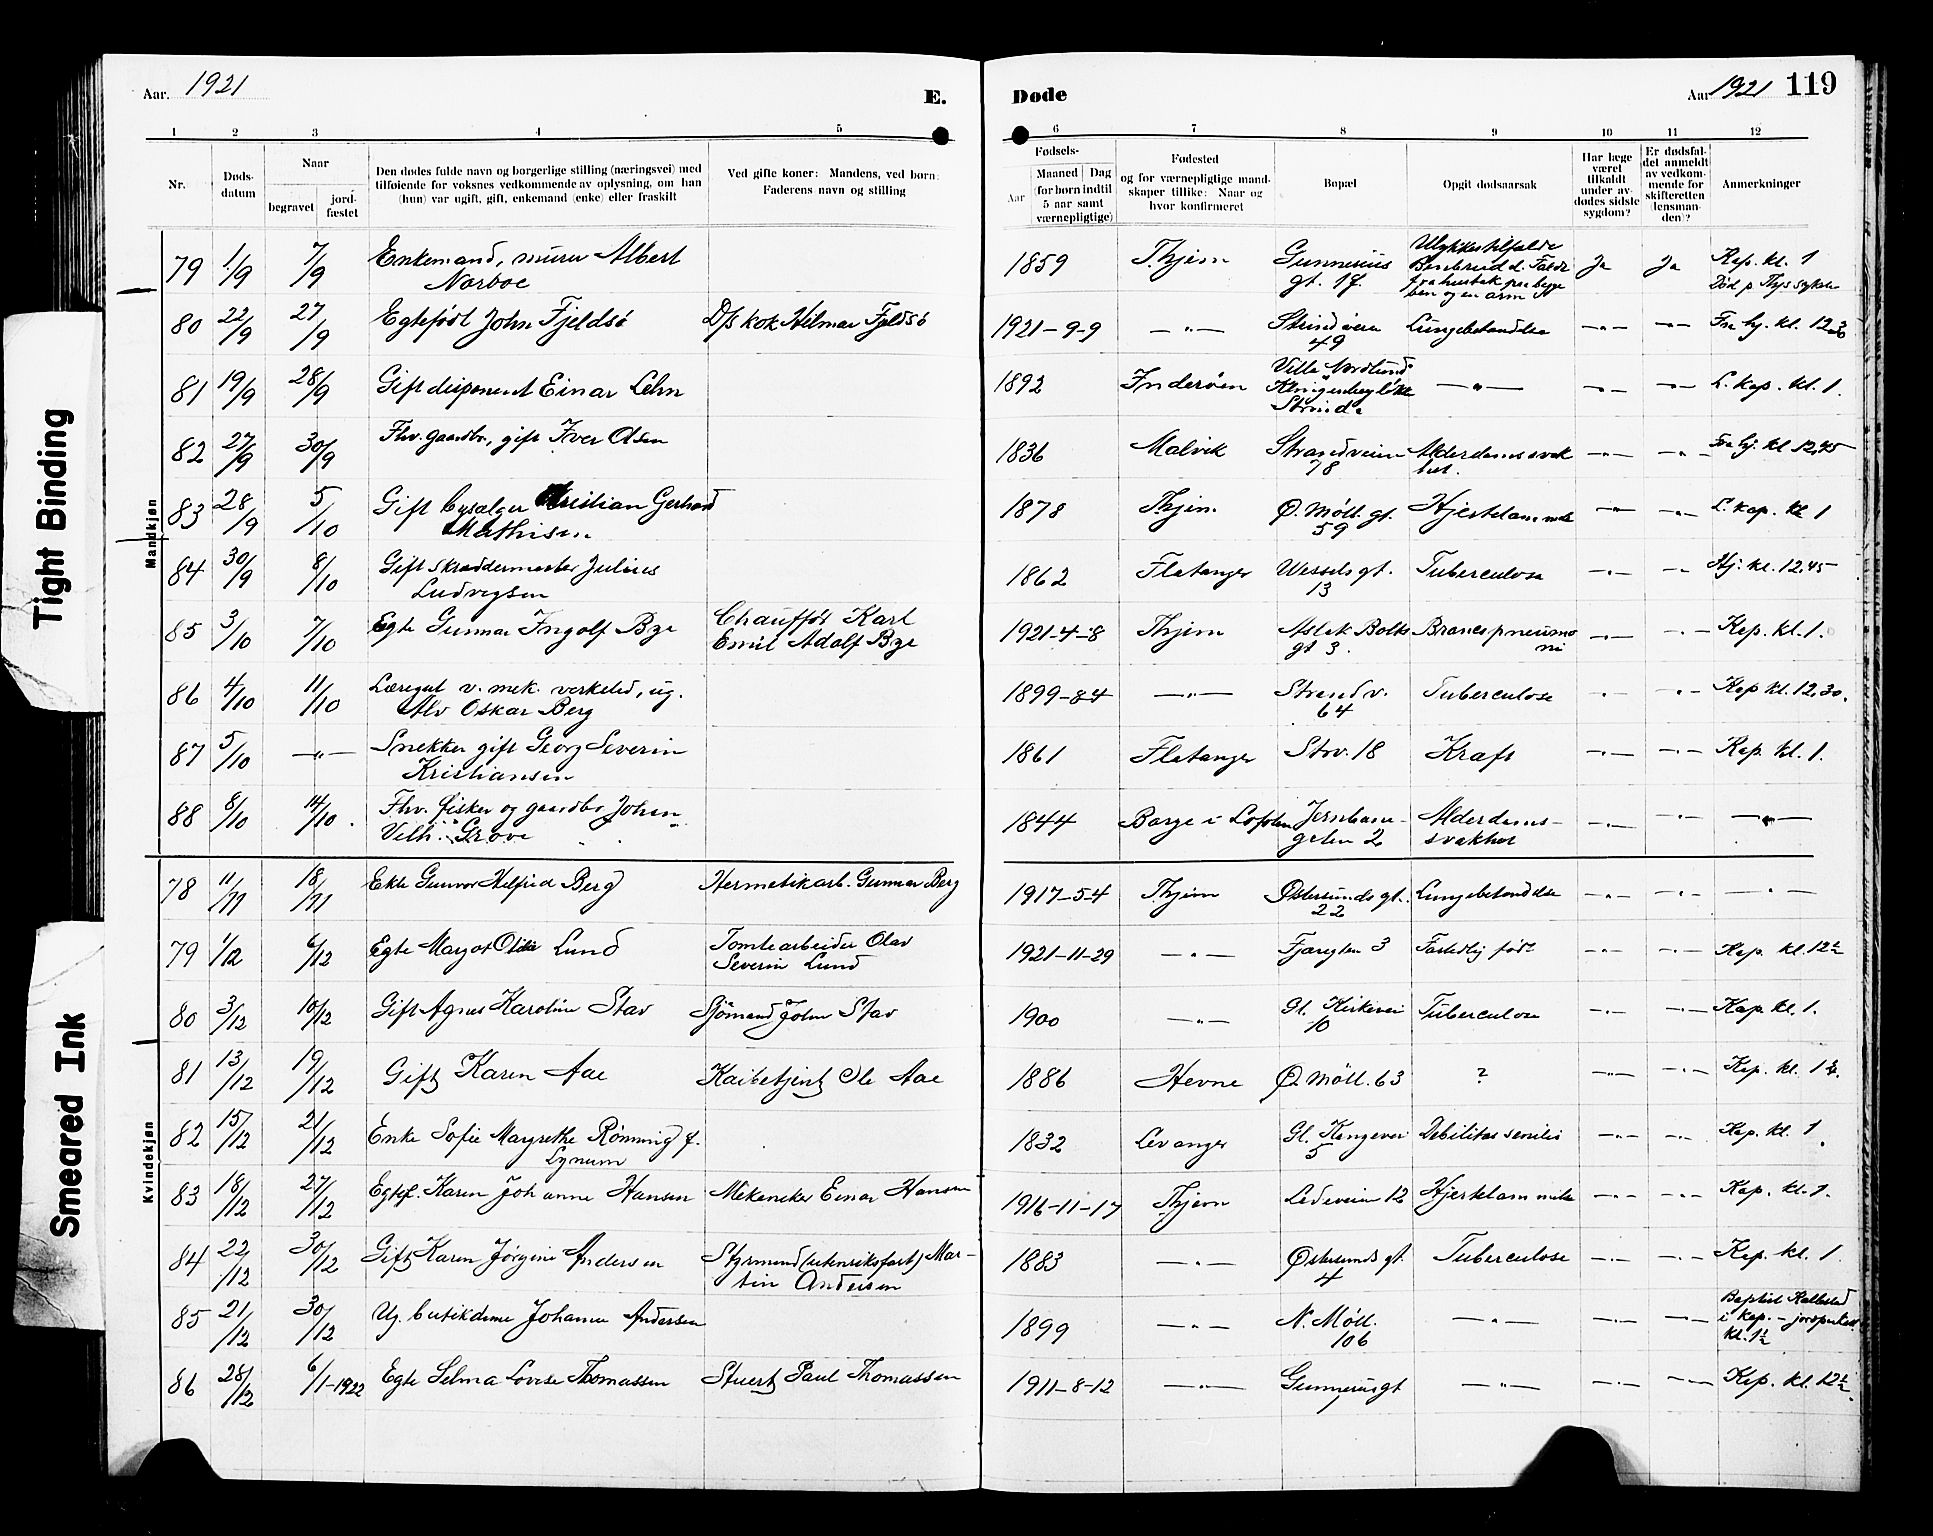 Tight Binding
Smeared Ink
Aar. 1921
E.
Døde
Aar 1921 119
1 2 3 4 5 6 7 8 9 10 11 12
Nr.
Døds-
datum
Naar
begravet
jord-
fæstet
Den dødes fulde navn og borgerlige stilling (næringsvei) med
tilføiende for voksnes vedkommende av oplysning, om han
(hun) var ugift, gift, enkemand (enke) eller fraskilt
Ved gifte koner: Mandens, ved børn:
Faderens navn og stilling
Fødsels-
Aar
Maaned Dag
(for børn indtil
5 aar samt
værnepligtige)
Fødested
og for værnepligtige mand-
skaper tillike: Naar og
hvor konfirmeret
Bopæl
Opgit dødsaarsak
Har læge
været
tilkaldt
under av-
dødes sidste
sygdom?
Er dødsfal-
det anmeldt
av vedkom-
mende for
skifteretten
(lensman-
den)?
Anmerkninger
Mandkjøn
79 1/9 7/9 Enkemand, murer Albert 1859 Thjem Gunnerius Ulykkestilfelde Ja Ja Kap. kl. 1
Norboe gt. Benbrud d. Fald
80 22/9 27/9 Egtefödt John Fjeldsö D/s kok Hilmar Fjeldsö 1921-9-9 —"— Strindveien Lungebetendelse —"— —"— Fra hj. kl. 12.30
49
81 19/9 28/9 Gift disponent Einar Lehn 1892 Inderöen Villa Nordlund —"— —"— —"— L. kap. kl. 1.
Strinda
82 27/9 30/9 Fhv. gaardbr., gift Iver Olsen 1836 Malvik Strandveien Alderdomssvak —"— —"— Fra hj. kl 12,45
78 het.
83 28/9 5/10 Gift bysælger Kristian Gerhard 1878 Thjem Ø. Möll. gt. Hjertelammelse —"— —"— L. kap. kl 1
Mathisen 59
84 30/9 8/10 Gift skræddermester Julius 1862 Flatanger Wessels gt. Tuberculose —"— —"— Hj. kl. 12.45
Ludvigsen 13
85 3/10 7/10 Egte Gunnar Ingolf Bye Chaufför Karl 1921-4-8 Thjem Aslak Bolts Broncspneumo —"— —"— Kap. kl. 1.
Emil Adolf Bye gt 3. ni
86 4/10 11/10 Læregut v. mek. verksted, ug. 1899-8-4 —"— Strandv. Tuberculose —"— —"— Kap kl. 12.30.
Alv Oskar Berg 64
87 5/10 —"— Snekker gift Georg Severin 1861 Flatanger Strv. 18 Kræft —"— —"— Kap. kl. 1.
Kristiansen
88 8/10 14/10. Fhv. fisker og gaardbr. Johan 1844 Borge i Lofoten Jernbane- Alderdoms- —"— —"— —"—
Vilh. Grove gaten 2 svakhet
Kvindekjøn
78 11/11 18/11 Ekte Gunvor Helfrid Berg Hermetikarb. Gunnar Berg 1917-5-4 Thjem Østersunds gt. Lungebetendelse —"— —"— —"—
22
79 1/12 6/12 Egte Margot Lund Tomtearbeider Olav 1921-11-29 —"— Fjærgten 3 Fortidlig födt —"— —"— Kap. kl. 12½
Severin Lund
80 3/12 10/12 Gift Agnes Karoline Stav Sjömand John Stav 1900 —"— Gl. Kirkevei Tuberculose —"— —"— Kap. kl. 1.
10
81 13/12 19/12 Gift Karen Aae Kaibetjent Ole Aae 1886 Hevne Ø. Möll. 63 ? —"— —"— Kap. kl. 1½.
82 15/12 21/12 Enke Sofie Margrethe Rönning f. 1832 Levanger Gl. Kongevei Debilitas senilis —"— —"— Kap. kl. 1.
Lynum 5
83 18/12 27/12 Egtef. Karen Johanne Hansen Mekaniker Einar Hansen 1916-11-17 Thjem Ladeveien 12 Hjertelammelse —"— —"— Kap. kl. 1.
84 22/12 30/12 Gift Karen Jörgine Andersen Styrmand (utenriksfart) Mar- 1883 —"— Østersunds gt. Tuberculose —"— —"— Kap. kl. 1
tin Andersen 4
85 21/12 30/12 Ug. butikdame Johanne Andersen 1899 —"— N. Möll. —"— —"— —"— Baptist
106 i kap. – jordpaakast
kl. 1½
86 28/12 6/1-1922 Egte Selma Lovise Thomassen Stuert Paul Thomassen 1911-8-12 —"— Gunnerusgt —"— —"— —"— Kap. kl. 12½.
7